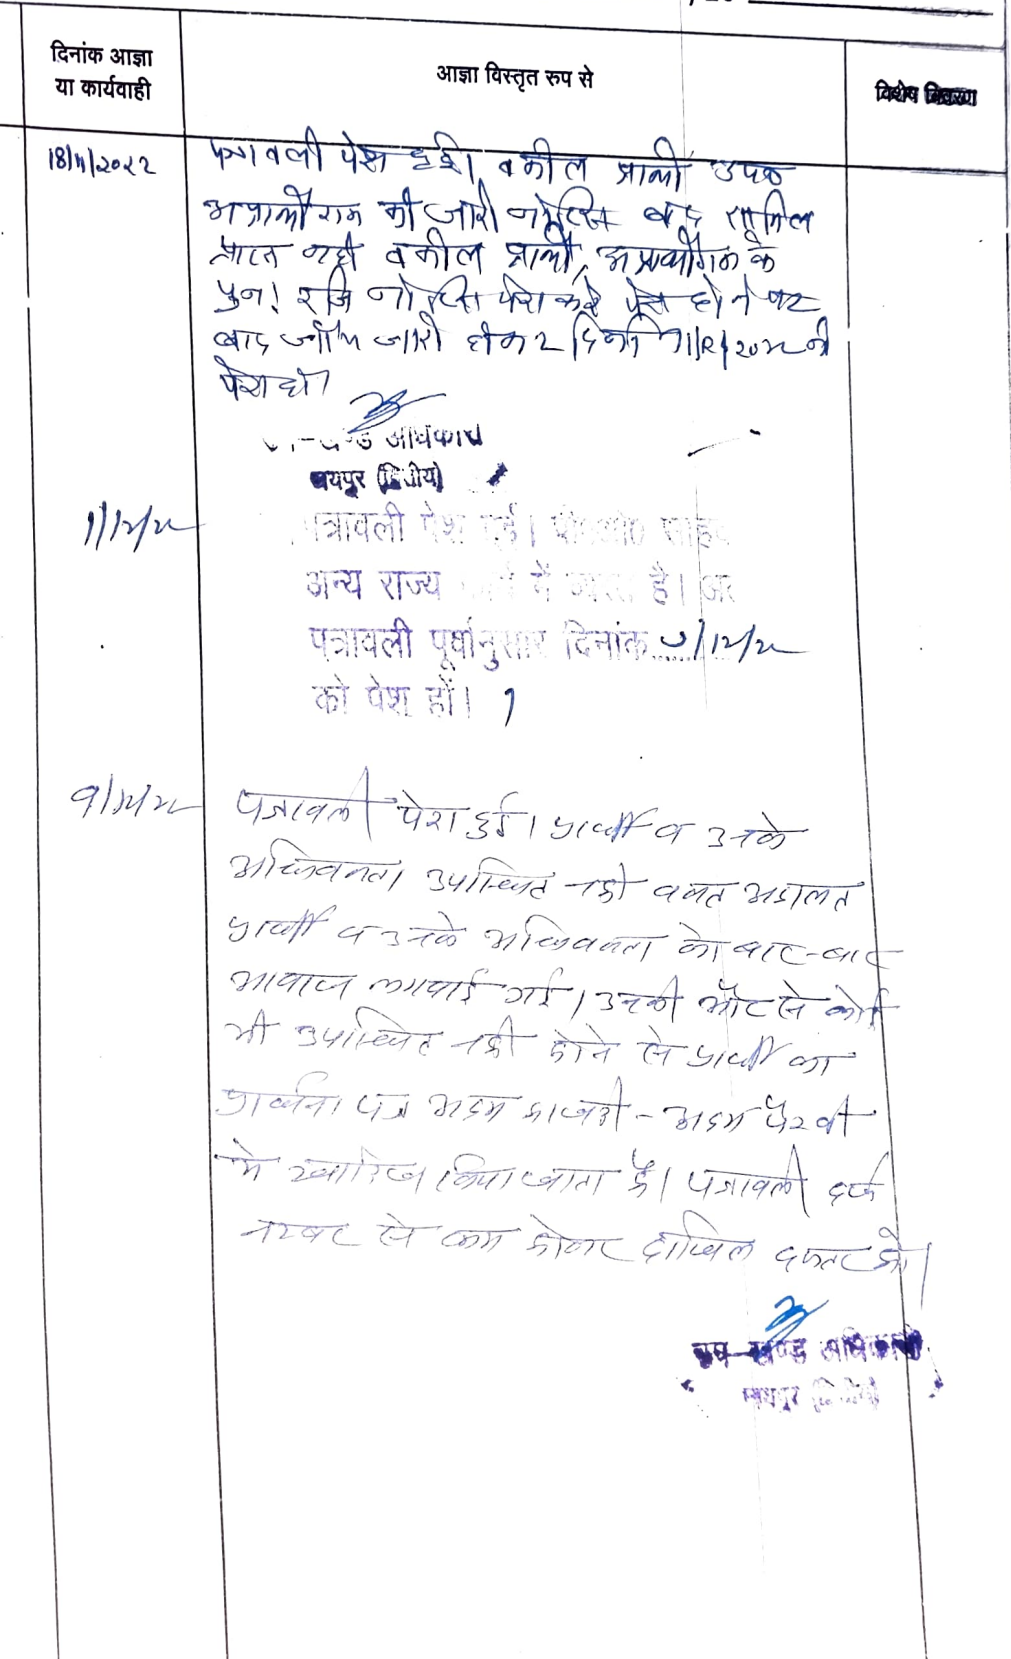 दिनांक आज्ञा
या कार्यवाही
आज्ञा विस्तृत रुप से
विशेष विवरण
18/11/2022
पत्रावली पेश हुई। वकील प्रार्थी उप०
अप्रार्थीगण को जारी नोटिस बाद तामिल
प्राप्त नही वकील प्रार्थी, अप्रार्थीगण के
पुन। रजि नोटिस पेश करे पेश होने पर
बाद जाँच जारी होकर दिनांक 1/12/2022 को
पेश हो।
उप-खण्ड अधिकारी
जयपुर (द्वितीय)
1/12/22
पत्रावली पेश हुई। पी०ओ० साहब
अन्य राज्य कार्य में व्यस्त है। अतः
पत्रावली पूर्वानुसार दिनांक 9/12/22
को पेश हों।
9/12/22
पत्रावली पेश हुई। प्रार्थी व उनके
अधिवक्ता उपस्थित नही वक्त अदालत
प्रार्थी व उनके अधिवक्ता को बार-बार
आवाज लगवाई गई। उनकी ओर से कोई
भी उपस्थित नही होने से प्रार्थी का
प्रार्थना पत्र अदम हाजरी - अदम पैरवी
मे खारिज किया जाता है। पत्रावली दर्ज
नम्बर से कम होकर दाखिल दफ्तर हो।
उप-खण्ड अधिकारी
जयपुर (द्वितीय)